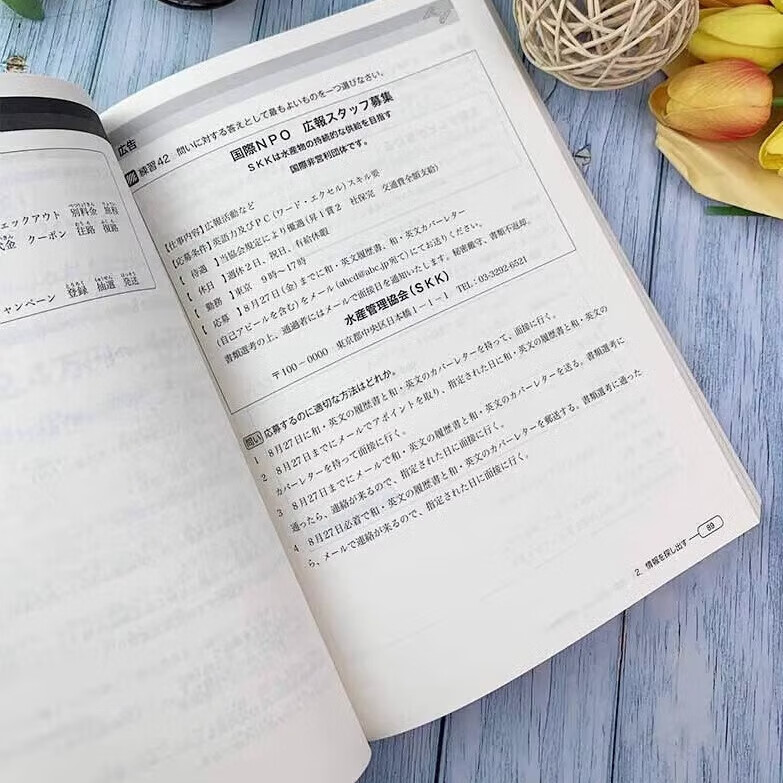 ェックアウト 別料金 旅程
代金 クーポン 往路 復路
ャンペーン 登録 抽選 発送
広告
練習42 問いに対する答えとして最もよいものを一つ選びなさい。
国際NPO 広報スタッフ募集
SKKは水産物の持続的な供給を目指す
国際非営利団体です。
【仕事内容】広報活動など
【応募条件】英語力及びPC(ワード・エクセル)スキル要
【 待遇 】当協会規定により優遇(昇1賞2 社保完 交通費全額支給)
【 休日 】週休2日、祝日、有給休暇
【 勤務 】東京 9時ー17時
【 応募 】8月27日(金)までに和・英文履歴書、和・英文カバーレター
(自己アピールを含む)をメール(abcd@abc.jp宛て)にてお送りください。秘密厳守、書類不返却。
書類選考の上、通過者にはメールで面接日を通知いたします。
水産管理協会(SKK)
〒100-0000 東京都中央区日本橋1-1-1 TEL:03-3292-6521
問い 応募するのに適切な方法はどれか。
1 8月27日に和・英文の履歴書と和・英文のカバーレターを持って、面接に行く。
2 8月27日までにメールでアポイントを取り、指定された日に和・英文の履歴書と和・英文の
カバーレターを持って面接に行く。
3 8月27日までにメールで和・英文の履歴書と和・英文のカバーレターを送る。書類選考に
通ったら、連絡が来るので、指定された日に面接に行く。
4 8月27日必着で和・英文の履歴書と和・英文のカバーレターを郵送する。書類選考に通った
ら、メールで連絡が来るので、指定された日に面接に行く。
2.情報を探し出す 89